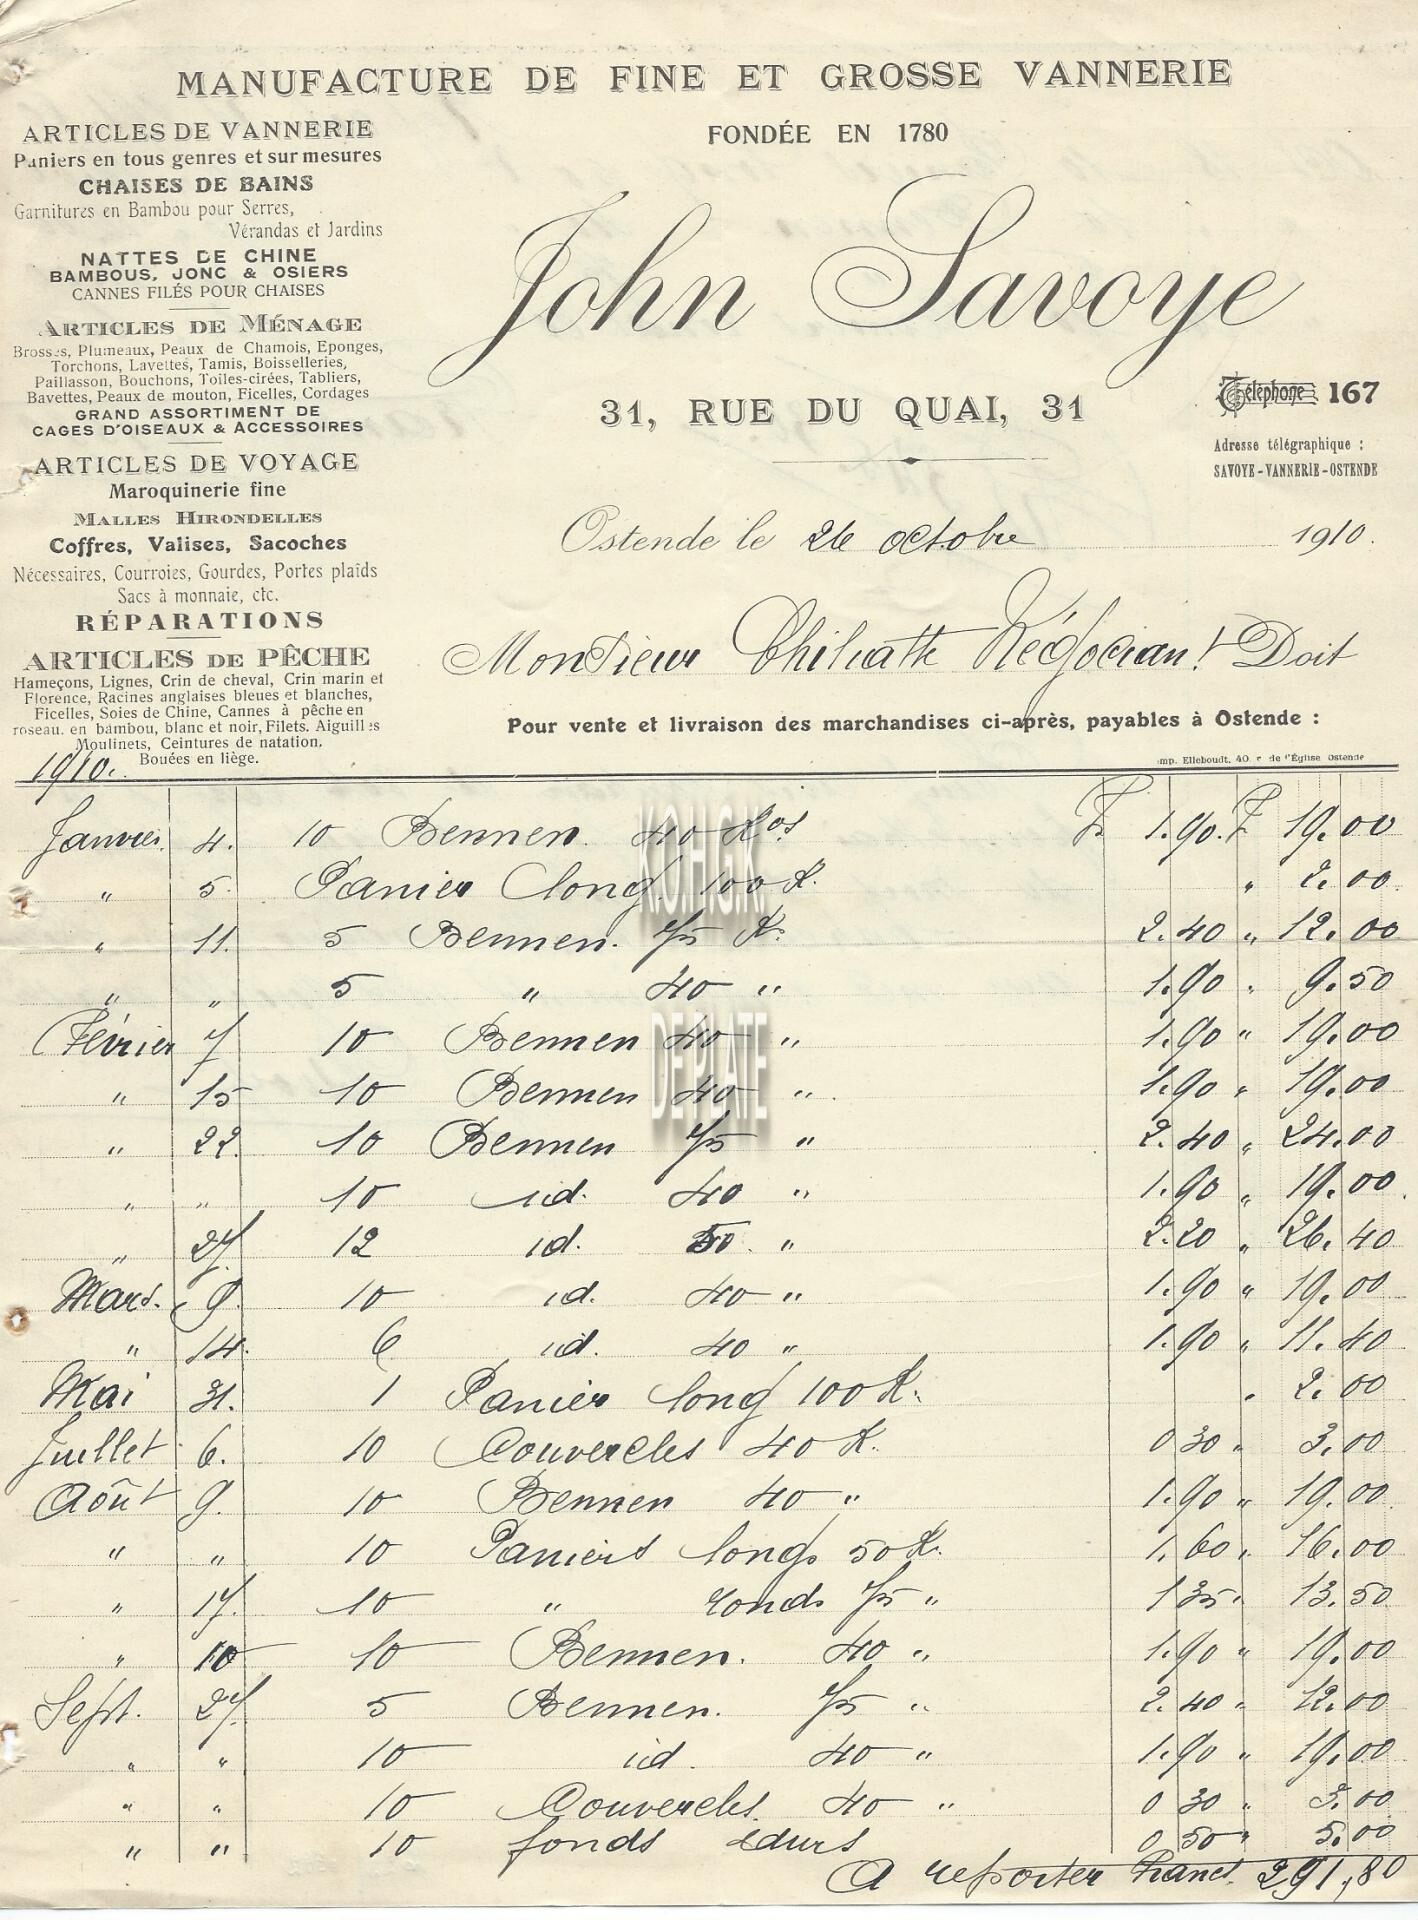 MANUFACTURE DE FINE ET GROSSE VANNERIE
FONDÉE EN 1780
ARTICLES DE VANNERIE
Paniers en tous genres et sur mesures
CHAISES DE BAINS
Garnitures en Bambou pour Serres,
Vérandas et Jardins
NATTES DE CHINE
BAMBOUS, JONC & OSIERS
CANNES FILÉS POUR CHAISES
ARTICLES DE MÉNAGE
Brosses, Plumeaux, Peaux de Chamois, Eponges,
Torchons, Lavettes, Tamis, Boisselleries,
Paillasson, Bouchons, Toiles-cirées, Tabliers,
Bavettes, Peaux de mouton, Ficelles, Cordages
GRAND ASSORTIMENT DE
CAGES D'OISEAUX & ACCESSOIRES
ARTICLES DE VOYAGE
Maroquinerie fine
MALLES HIRONDELLES
Coffres, Valises, Sacoches
Nécessaires, Courroies, Gourdes, Portes plaids
Sacs à monnaie, etc.
RÉPARATIONS
ARTICLES DE PÊCHE
Hameçons, Lignes, Crin de cheval, Crin marin et
Florence, Racines anglaises bleues et blanches,
Ficelles, Soies de Chine, Cannes à pêche en
roseau, en bambou, blanc et noir, Filets. Aiguilles
Moulinets, Ceintures de natation.
Bouées en liège.
John Savoye
31, RUE DU QUAI, 31
Téléphone 167
Adresse télégraphique :
SAVOYE-VANNERIE-OSTENDE
Ostende le 26 octobre 1910.
Monsieur Négociant Doit
Pour vente et livraison des marchandises ci-après, payables à Ostende :
Imp. Elleboudt, 40 r de l'Église Ostende
1910.
Janvier 4. 10 Bennen 40 Kos F. 1.90. F 19.00
" 5. Panier long 100 K. " 2.00
" 11. 5 Bennen. 75 K. 2.40 " 12.00
" " 5 " 40 " 1.90 " 9.50
Février 7 10 Bennen 40 " 1.90 " 19.00
" 15 10 Bennen 40 " 1.90 " 19.00
" 22. 10 Bennen 75 " 2.40 " 24.00
" " 10 id. 40 " 1.90 " 19.00
" 27. 12 id. 50 " 2.20 " 26.40
Mars. 9. 10 id. 40 " 1.90 " 19.00
" 14. 6 id. 40 " 1.90 " 11.40
Mai 31. 1 Panier long 100 K. " 2.00
Juillet 6. 10 Couvercles 40 K. 0 30 " 3.00
Août 9. 10 Bennen 40 " 1.90 " 19.00
" " 10 Paniers longs 50 K. 1.60 " 16.00
" 17. 10 " ronds 75 " 1 35 " 13.50
" 10 10 Bennen. 40 " 1.90 " 19.00
Sept. 27. 5 Bennen. 75 " 2.40 " 12.00
" " 10 id. 40 " 1.90 " 19.00
" " 10 Couvercles 40 " 0 30 " 3.00
" " 10 fonds durs 0 50 " 5.00
A reporter Francs. 291,80
K.O.H.G.K.
DE PLATE